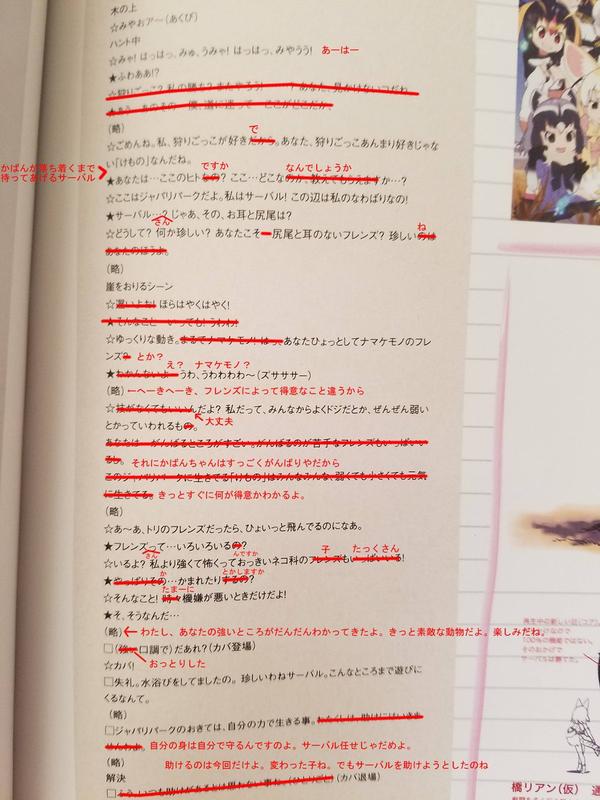 木の上
☆みやおアー(あくび)
ハント中
☆みゃ! はっはっ、みゅ、うみゃ! はっはっ、みやうう! あーはー
★ふわああ!?
☆狩りごっこ? 私の勝ち? あなた、見かけないコだね
(略)
で
☆ごめんね。私、狩りごっこが好きだから。あなた、狩りごっこあんまり好きじゃな
い「けもの」なんだね。
かばんが落ち着くまで
待ってあげるサーバル
ですか なんでしょうか
★あなたは…ここのヒトなの? ここ…どこなのか、教えてもらえますか…?
☆ここはジャパリパークだよ。私はサーバル! この辺は私のなわばりなの!
★サーバル…? じゃあ、その、お耳と尻尾は?
さん ね
☆どうして? 何か珍しい? あなたこそ 尻尾と耳のないフレンズ? 珍しいのは
あなたのほうよ。
(略)
崖をおりるシーン
☆遅いよお! ほらはやくはやく!
★そんなこと いっても! うわわ!
☆ゆっくりな動き。まるでナマケモノ! はっ、あなたひょっとしてナマケモノのフレ
ンズ? とか?
え? ナマケモノ?
★わかんないよ うわ、うわわわわ〜(ズササササー)
(略)←へーきへーき、フレンズによって得意なこと違うから
☆技がなくてもいいんだよ? 私だって、みんなからよくドジだとか、ぜんぜん弱い
大丈夫
とかっていわれるもの。
あなたは がんばるところがすごい。がんばるのが苦手なフレンズもいっぱいい
るし。 それにかばんちゃんはすっごくがんばりやだから
このジャパリパークに生きてる「けもの」はみんなみんな、弱くても小さくても元気
に生きてる。 きっとすぐに何が得意かわかるよ。
(略)
☆あ〜あ、トリのフレンズだったら、ひょいっと飛んでるのになあ。
★フレンズって…いろいろいるの?
さん んですか 子 たっくさん
☆いるよ? 私より強くて怖くっておっきいネコ科のフレンズもいっぱいいる!
か とかしますか
★やっぱりその…かまれたりするの?
たまーに
☆そんなこと! 時々機嫌が悪いときだけだよ!
★そ、そうなんだ…
(略)←わたし、あなたの強いところがだんだんわかってきたよ。きっと素敵な動物だよ。楽しみだね。
□(強い口調で)だあれ?(カバ登場)
おっとりした
☆カバ!
□失礼。水浴びをしてましたの。 珍しいわねサーバル。こんなところまで遊びに
くるなんて。
(略)
□ジャパリパークのおきては、自分の力で生きる事。わたくしは、助けにはいきま
せんわよ。 自分の身は自分で守るんですのよ。サーバル任せじゃだめよ。
(略) 助けるのは今回だけよ。変わった子ね。でもサーバルを助けようとしたのね
解決
□もう、いつも助けがあるとは思わない事ね。(ひとりごと) (カバ退場)
橘リアン(仮)